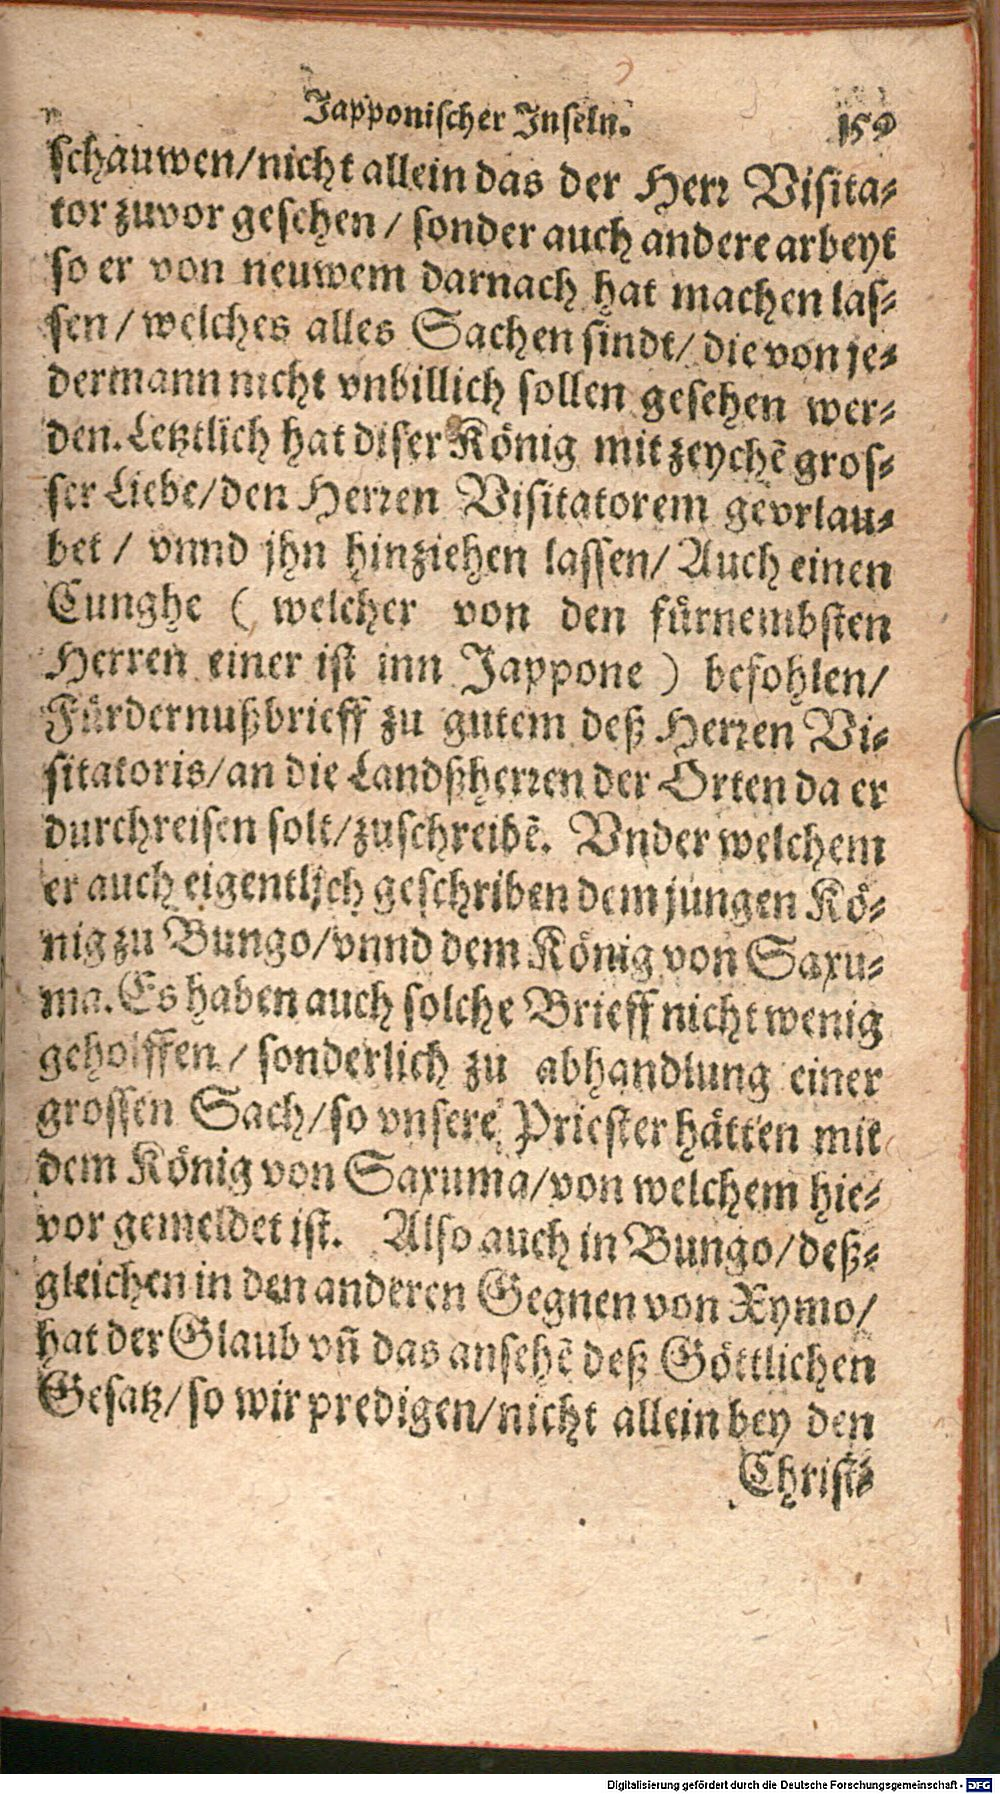 Japponischer Inseln. 159
schauwen/nicht allein das der Herr Visita⸗
tor zuvor gesehen / sonder auch andere arbeyt
so er von neuwem darnach hat machen las⸗
sen / welches alles Sachen sindt/ die von je⸗
dermann nicht vnbillich sollen gesehen wer⸗
den. Letztlich hat diser König mit zeychẽ gros⸗
ser Liebe/den Herren Visitatorem gevrlau⸗
bet / vnnd jhn hinziehen lassen/ Auch einen
Cunghe ( welcher von den fürnembsten
Herren einer ist inn Jappone ) befohlen/
Fürdernußbrieff zu gutem deß Herren Vi⸗
sitatoris/an die Landßherren der Orten da er
durchreisen solt/zuschreibẽ. Vnder welchem
er auch eigentlich geschriben dem jungen Kö⸗
nig zu Bungo/vnnd dem König von Saxu⸗
ma. Es haben auch solche Brieff nicht wenig
geholffen / sonderlich zu abhandlung einer
grossen Sach/so vnsere Priester hätten mit
dem König von Saxuma/von welchem hie⸗
vor gemeldet ist. Also auch in Bungo/deß⸗
gleichen in den anderen Gegnen von Xymo/
hat der Glaub vñ das ansehẽ deß Göttlichen
Gesatz/so wir predigen/nicht allein bey den
Christ⸗
Digitalisierung gefördert durch die Deutsche Forschungsgemeinschaft - DFG